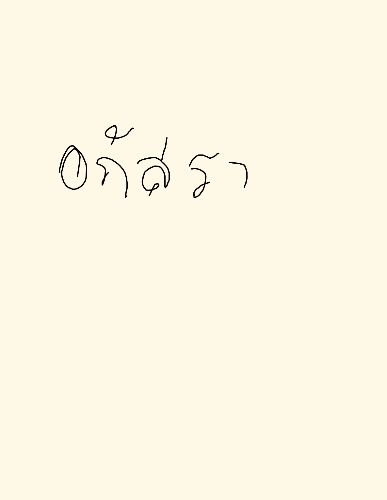 อกัสรา